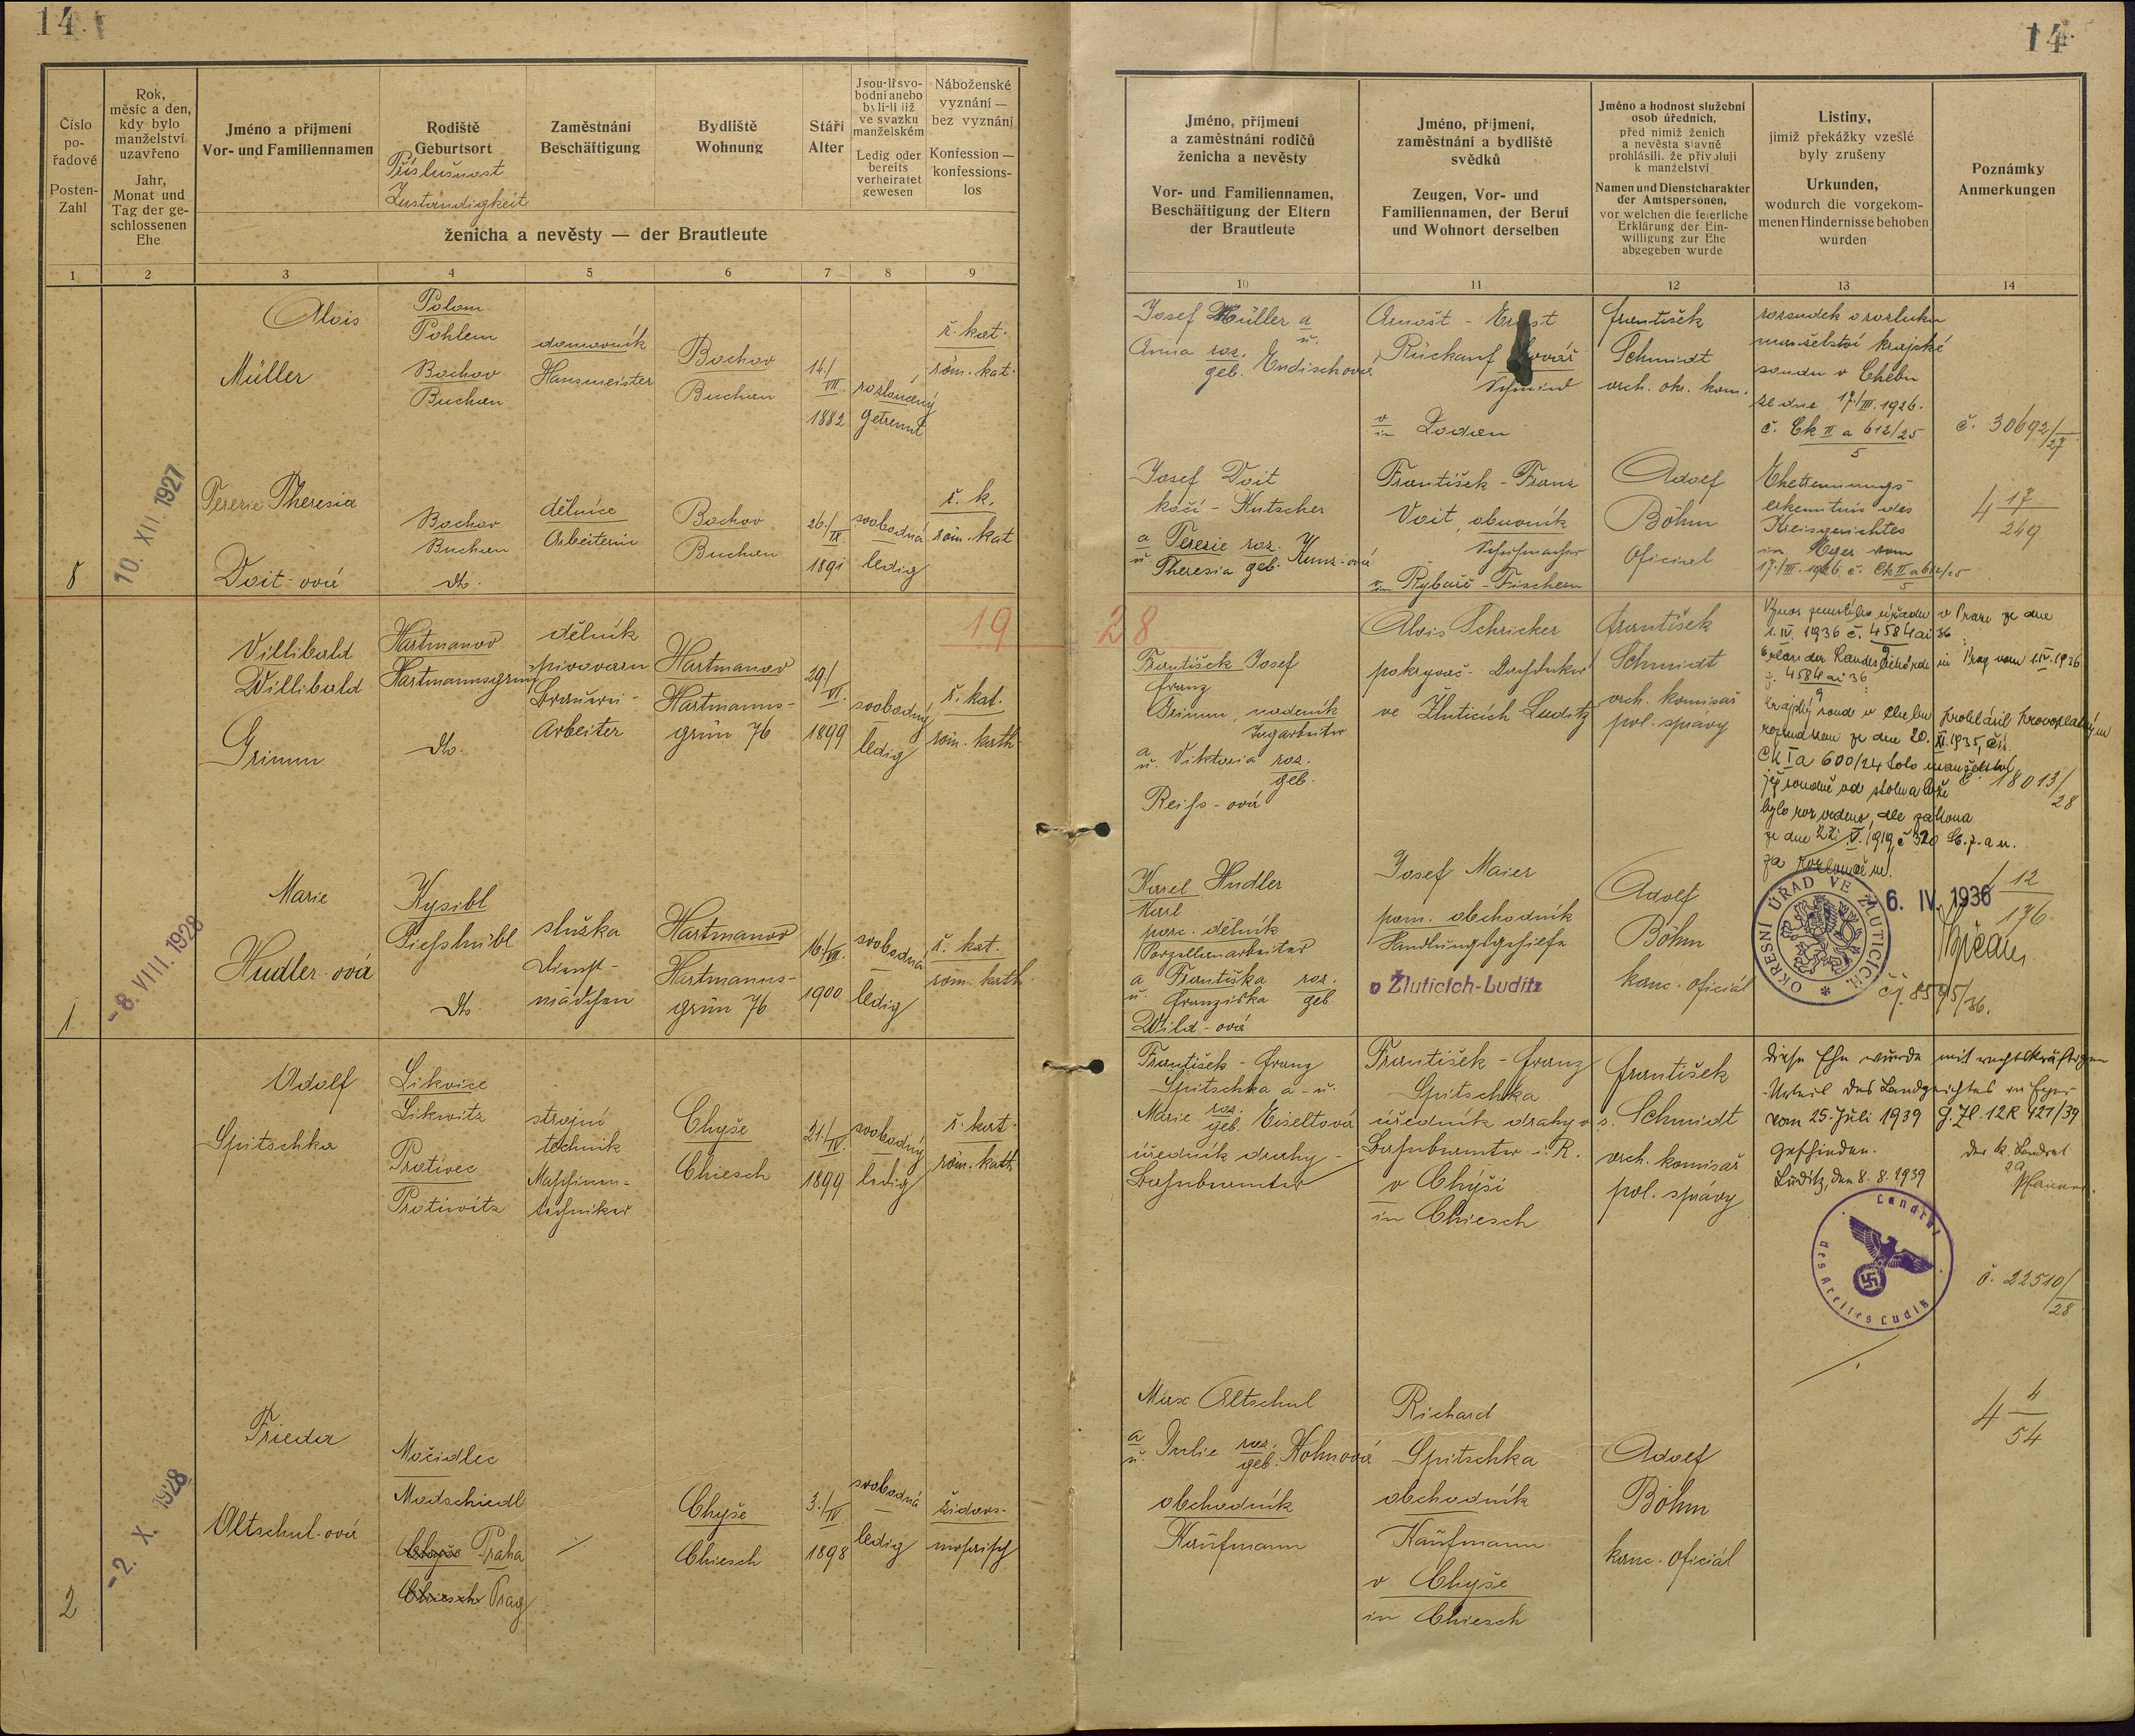 14.
14.
Číslo
po-
řadové
Posten-
Zahl
Rok,
měsíc a den,
kdy bylo
manželství
uzavřeno
Jahr,
Monat und
Tag der ge-
schlossenen
Ehe
Jméno a příjmení
Vor- und Familiennamen
Rodiště
Geburtsort
Příslušnost
Zuständigkeit
Zaměstnání
Beschäftigung
Bydliště
Wohnung
Stáří
Alter
Jsou-li svo-
bodni anebo
byli-li již
ve svazku
manželském
Ledig oder
bereits
verheiratet
gewesen
Náboženské
vyznání —
bez vyznání
Konfession —
konfessions-
los
ženicha a nevěsty — der Brautleute
Jméno, příjmení
a zaměstnání rodičů
ženicha a nevěsty
Vor- und Familiennamen,
Beschäftigung der Eltern
der Brautleute
Jméno, příjmení,
zaměstnání a bydliště
svědků
Zeugen, Vor- und
Familiennamen, der Beruf
und Wohnort derselben
Jméno a hodnost služební
osob úředních,
před nimiž ženich
a nevěsta slavně
prohlásili, že přivolují
k manželství
Namen und Dienstcharakter
der Amtspersonen,
vor welchen die feierliche
Erklärung der Ein-
willigung zur Ehe
abgegeben wurde
Listiny,
jimiž překážky vzešlé
byly zrušeny
Urkunden,
wodurch die vorgekom-
menen Hindernisse behoben
wurden
Poznámky
Anmerkungen
1 2 3 4 5 6 7 8 9 10 11 12 13 14
8
10. XII. 1927
Alois
Müller
Polom
Pohlem
Bochov
Buchau
domovník
Hausmeister
Bochov
Buchau
14./
VII.
1882
rozloučený
getrennt
ř. kat.
röm. kat.
Josef Müller a
u.
Anna roz.
geb. Endischova
Arnošt - Ernst
Rückauf kovář
Schmied
v
in Lodau
František
Schmidt
vrch. okr. kom.
rozsudek o rozluku
manželství krajské
soudu v Chebu
ze dne 17./III. 1926.
č. Ck II a 612/25
5
č. 30692/
27
Terezie Theresia
Voit-ová
Bochov
Buchau
dto.
dělnice
Arbeiterin
Bochov
Buchau
26./
IX.
1891
svobodná
ledig
ř. k.
röm. kat
Josef Voit
kočí - Kutscher
a Terezie roz.
u. Theresia geb. Kunz-ová
František - Franz
Voit, obuvník
Schuhmacher
v
in Rybáře - Fischern
Adolf
Böhm
Oficial
Ehetrennungs-
erkenntnis des
Kreisgerichtes
in Eger vom
17./III. 1926 č. Ck II a 612/25
5
4 17
249
19
28
1
- 8. VIII. 1928
Villibald
Willibald
Grimm
Hartmanov
Hartmannsgrün
dto.
dělník
pivovaru
Brauerei-
Arbeiter
Hartmanov
Hartmanns-
grün 76
29./
VI.
1899
svobodný
ledig
ř. kat.
röm. kath.
František Josef
Franz
Grimm, nádeník
Tagarbeiter
a
u. Viktoria roz.
geb.
Reiß-ová
Alois Schricker
pokryvač - Dachdecker
ve Žluticích-Luditz
František
Schmidt
vrch. komisař
pol. správy
Výnos zemského úřadu v Praze ze dne
1. IV. 1936 č. 4584 ai 36
9
Erlass der Landesbehörde in Prag vom 1. IV. 1936
z. 4584 ai 36
9
Krajský soud v Chebu prohlásil pravoplatným
rozsudkem ze dne 20. XI. 1935, č.j.
Ck I a 600/24 toto manželství
jež soudně od stolu a lože
bylo rozvedeno, dle zákona
ze dne 22. V. 1919 č. 320 Sb. z. a n.
za rozloučené.
č. 18013/
28
Marie
Hudler-ová
Kysibl
Gießhübl
dto.
služka
Dienst-
mädchen
Hartmanov
Hartmanns-
grün 76
16./VII.
1900
svobodná
ledig
ř. kat.
röm. kath.
Karel Hudler
Karl
porc. dělník
Porzellanarbeiter
a Františka roz.
u. Franziska geb.
Wild-ová
Josef Maier
pom. obchodník
Handlungsgehilfe
v Žluticích-Luditz
Adolf
Böhm
kanc. oficiál
OKRESNÍ ÚŘAD VE ŽLUTICÍCH
6. IV. 1936
12
176
čj. 8595/36.
2
- 2. X. 1928
Adolf
Spitschka
Likvice
Likwitz
Protivec
Protiwitz
strojní
technik
Maschinen-
techniker
Chyše
Chiesch
21./
IV.
1899
svobodný
ledig
ř. kat.
röm. kath
František - Franz
Spitschka a - u.
Marie roz.
geb. Eiseltová
úředník dráhy -
Bahnbeamter
František - Franz
Spitschka
úředník dráhy v. s.
Bahnbeamter i. R.
v Chyši
in Chiesch
František
Schmidt
vrch. komisař
pol. správy
Diese Ehe wurde mit rechtskräftigem
Urteil des Landgerichtes in Eger
vom 25. Juli 1939 G. Zl. 12 R 421/39
geschieden.
Luditz, den 8. 8. 1939
Der k. Landrat
Landrat
des Kreises Luditz
č. 22510/
28
Frieda
Altschul-ová
Močidlec
Modschiedl
Chyše Praha
Chiesch Prag
Chyše
Chiesch
3./
IV.
1898
svobodná
ledig
židovs-
mosaisch
Max Altschul
a
u. Julie roz.
geb. Kohnová
obchodník
Kaufmann
Richard
Spitschka
obchodník
Kaufmann
v Chyše
in Chiesch
Adolf
Böhm
kanc. oficiál
4 4
54